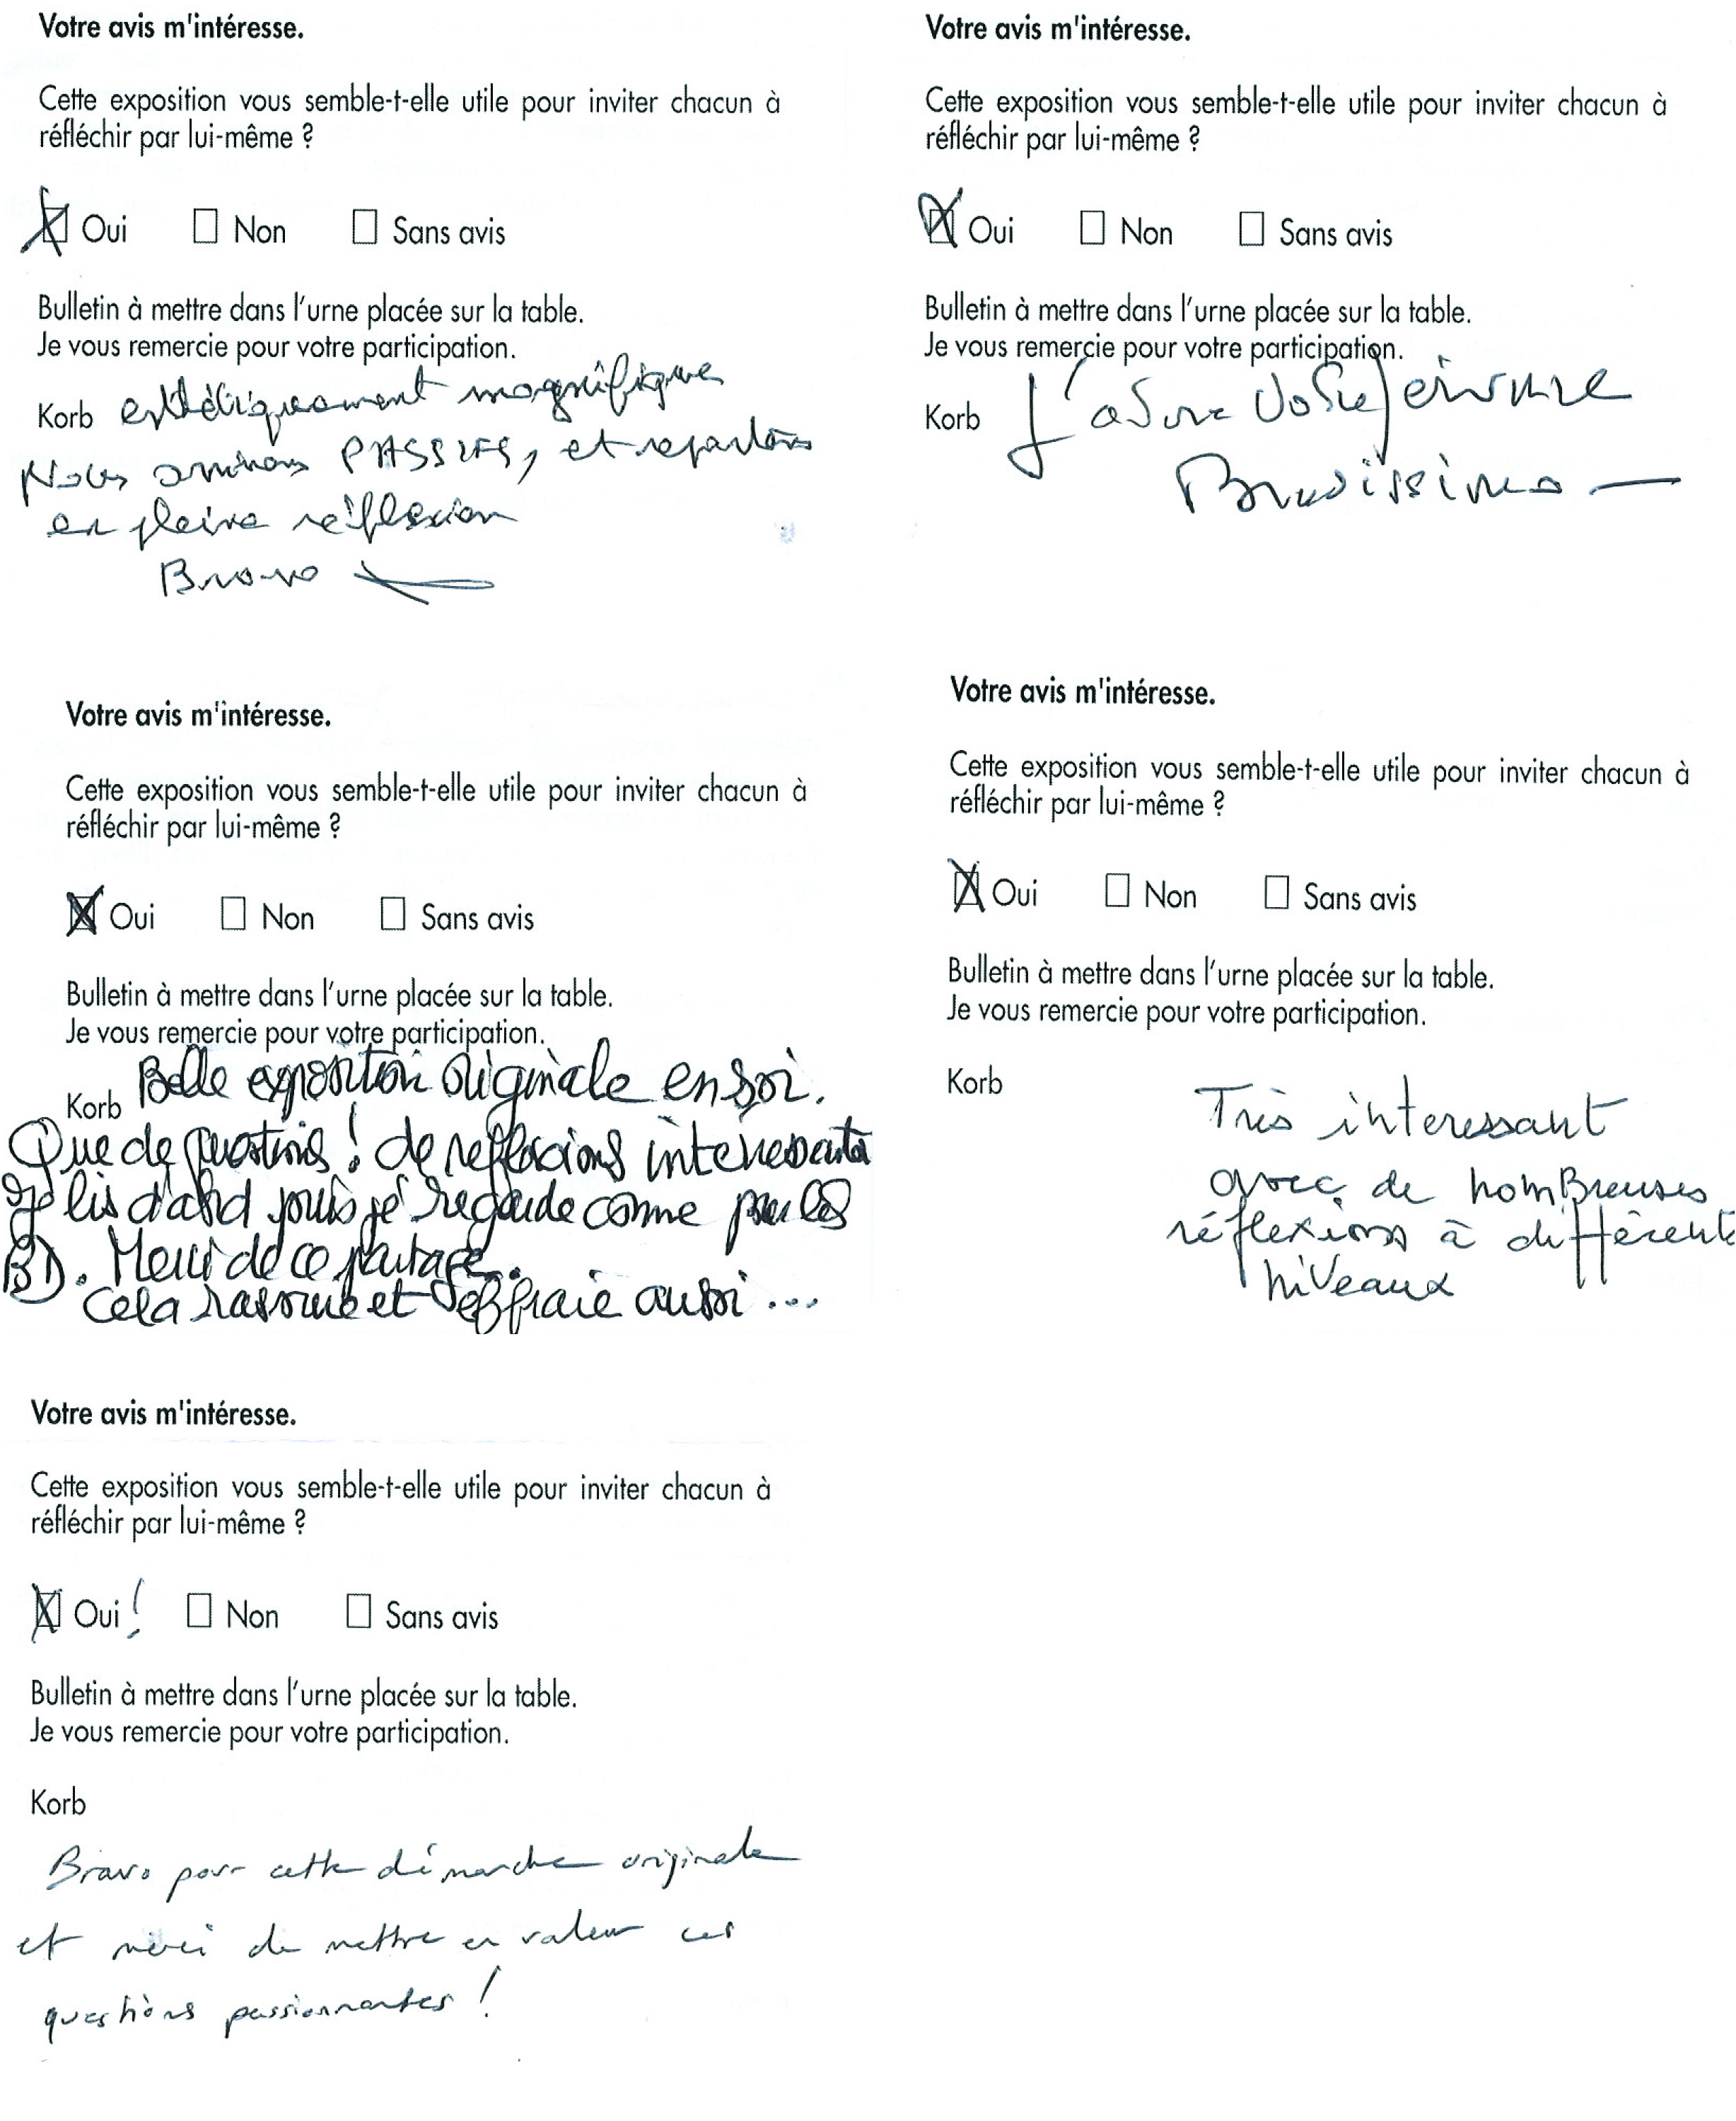 Votre avis m'intéresse.
Cette exposition vous semble-t-elle utile pour inviter chacun à
réfléchir par lui-même ?
Oui Non Sans avis
Bulletin à mettre dans l'urne placée sur la table.
Je vous remercie pour votre participation.
Korb esthétiquement magnifique
Nous arrivons PASSIFS, et repartons
en pleine réflexion
Bravo
Votre avis m'intéresse.
Cette exposition vous semble-t-elle utile pour inviter chacun à
réfléchir par lui-même ?
Oui Non Sans avis
Bulletin à mettre dans l'urne placée sur la table.
Je vous remercie pour votre participation.
Korb J'adore
Bravissimo
Votre avis m'intéresse.
Cette exposition vous semble-t-elle utile pour inviter chacun à
réfléchir par lui-même ?
Oui Non Sans avis
Bulletin à mettre dans l'urne placée sur la table.
Je vous remercie pour votre participation.
Korb Belle exposition originale en soi.
Que de questions ! de reflexions interessantes
Je lis d'abord puis je regarde comme pour les
BD. Merci de ce partage.
Cela rassure et effraie aussi ...
Votre avis m'intéresse.
Cette exposition vous semble-t-elle utile pour inviter chacun à
réfléchir par lui-même ?
Oui Non Sans avis
Bulletin à mettre dans l'urne placée sur la table.
Je vous remercie pour votre participation.
Korb
Très interessant
avec de nomBreuses
réflexions à différents
niVeaux
Votre avis m'intéresse.
Cette exposition vous semble-t-elle utile pour inviter chacun à
réfléchir par lui-même ?
Oui ! Non Sans avis
Bulletin à mettre dans l'urne placée sur la table.
Je vous remercie pour votre participation.
Korb
Bravo pour cette démarche originale
et merci de mettre en valeur ces
questions passionnantes !